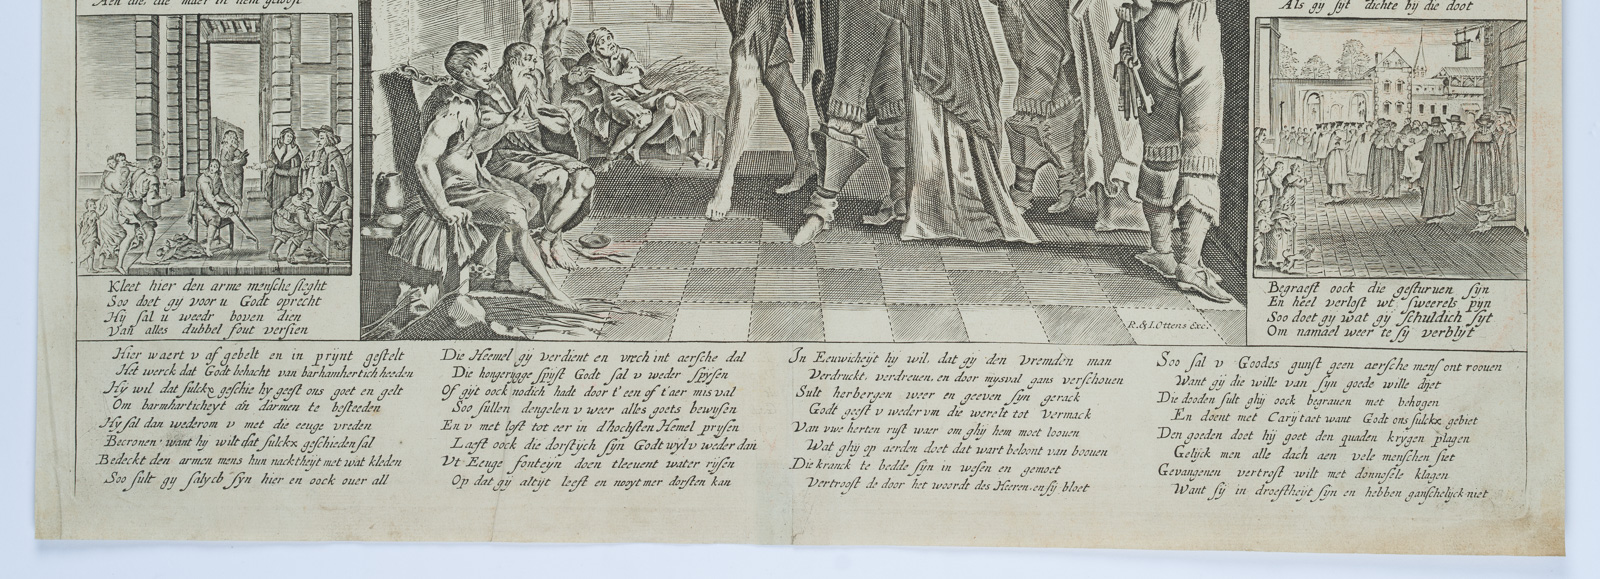 Aen die, die maer in hem gelooft
Als gy syt dichte by die doot
Kleet hier den arme mensche sleght
Soo doet gy voor u Godt oprecht
Hy sal u weedr boven dien
Van alles dubbel fout versien
Begraeft oock die gesturuen syn
En heel verlost wt sweerels pyn
Soo doet gy wat gy schuldich syt
Om namael weer te sy verblyt
R. & I. Ottens Exc.
Hier waert v af gebelt en in prijnt gestelt
Het werck dat Godt behacht van barhamhertich heeden
Hy wil dat sulckx geschie hy geeft ons goet en gelt
Om barmharticheyt an darmen te besteeden
Hy sal dan wederom v met die eeuge vreden
Becronen want hy wilt dat sulckx geschieden sal
Bedeckt den armen mens hun nacktheyt met wat kleden
Soo sult gy salych syn hier en oock ouer all
Die Heemel gij verdient en vrech int aersche dal
Die hongerygge spyst Godt sal v weder spysen
Of gijt oock nodich hadt door t'een of t'aer mis val
Soo sullen dengelen v weer alles goets bewysen
En v met lost tot eer in d'hochsten Hemel prysen
Laeft oock die dorstych syn Godt wyl v weder dan
Vt Eenge fonteyn doen tleevent water rysen
Op dat gy altyt leeft en nooyt mer dorsten kan
In Eeuwicheyt hy wil dat gy den vremden man
Verdruckt, verdreuen, en door mysval gans verschouen
Sult herbergen weer en geeven syn gerack
Godt geeft v weder vm die werelt tot vermack
Van vwe herten rust waer om ghy hem moet loouen
Wat ghy op aerden doet dat wart beloont van boouen
Die kranck te bedde syn in wesen en gemoet
Vertroost de door het woordt des Heeren en sy bloet
Soo sal v Goodes gunst geen aersche mens ont roouen
Want gij die wille van syn goede wille dyet
Die dooden sult ghy oock begrauen met behagen
En doent met Carijtaet want Godt ons sulckx gebiet
Den goeden doet hij goet den quaden krygen plagen
Gelyck men alle dach aen vele menschen siet
Gevangenen vertrost wilt met donnosele klagen
Want sij in droefheyt syn en hebben ganschelijck niet